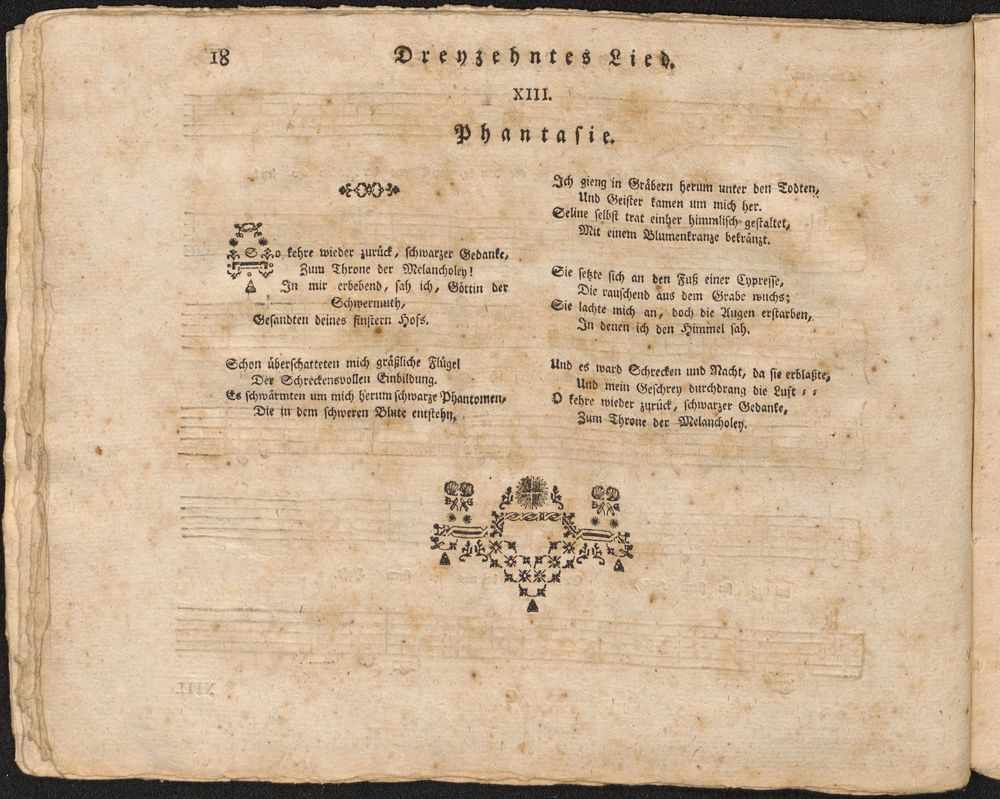 18
Dreyzehntes Lied.
XIII.
Phantasie.
So kehre wieder zurück, schwarzer Gedanke,
Zum Throne der Melancholey!
In mir erbebend, sah ich, Göttin der
Schwermuth,
Gesandten deines finstern Hofs.
Schon überschatteten mich gräßliche Flügel
Der Schreckensvollen Einbildung.
Es schwärmten um mich herum schwarze Phantomen,
Die in dem schweren Blute entstehn,
Ich gieng in Gräbern herum unter den Todten,
Und Geister kamen um mich her.
Seline selbst trat einher himmlisch gestaltet,
Mit einem Blumenkranze bekränzt.
Sie setzte sich an den Fuß einer Cypresse,
Die rauschend aus dem Grabe wuchs;
Sie lachte mich an, doch die Augen erstarben,
In denen ich den Himmel sah.
Und es ward Schrecken und Nacht, da sie erblaßte,
Und mein Geschrey durchdrang die Luft = =
O kehre wieder zurück, schwarzer Gedanke,
Zum Throne der Melancholey.